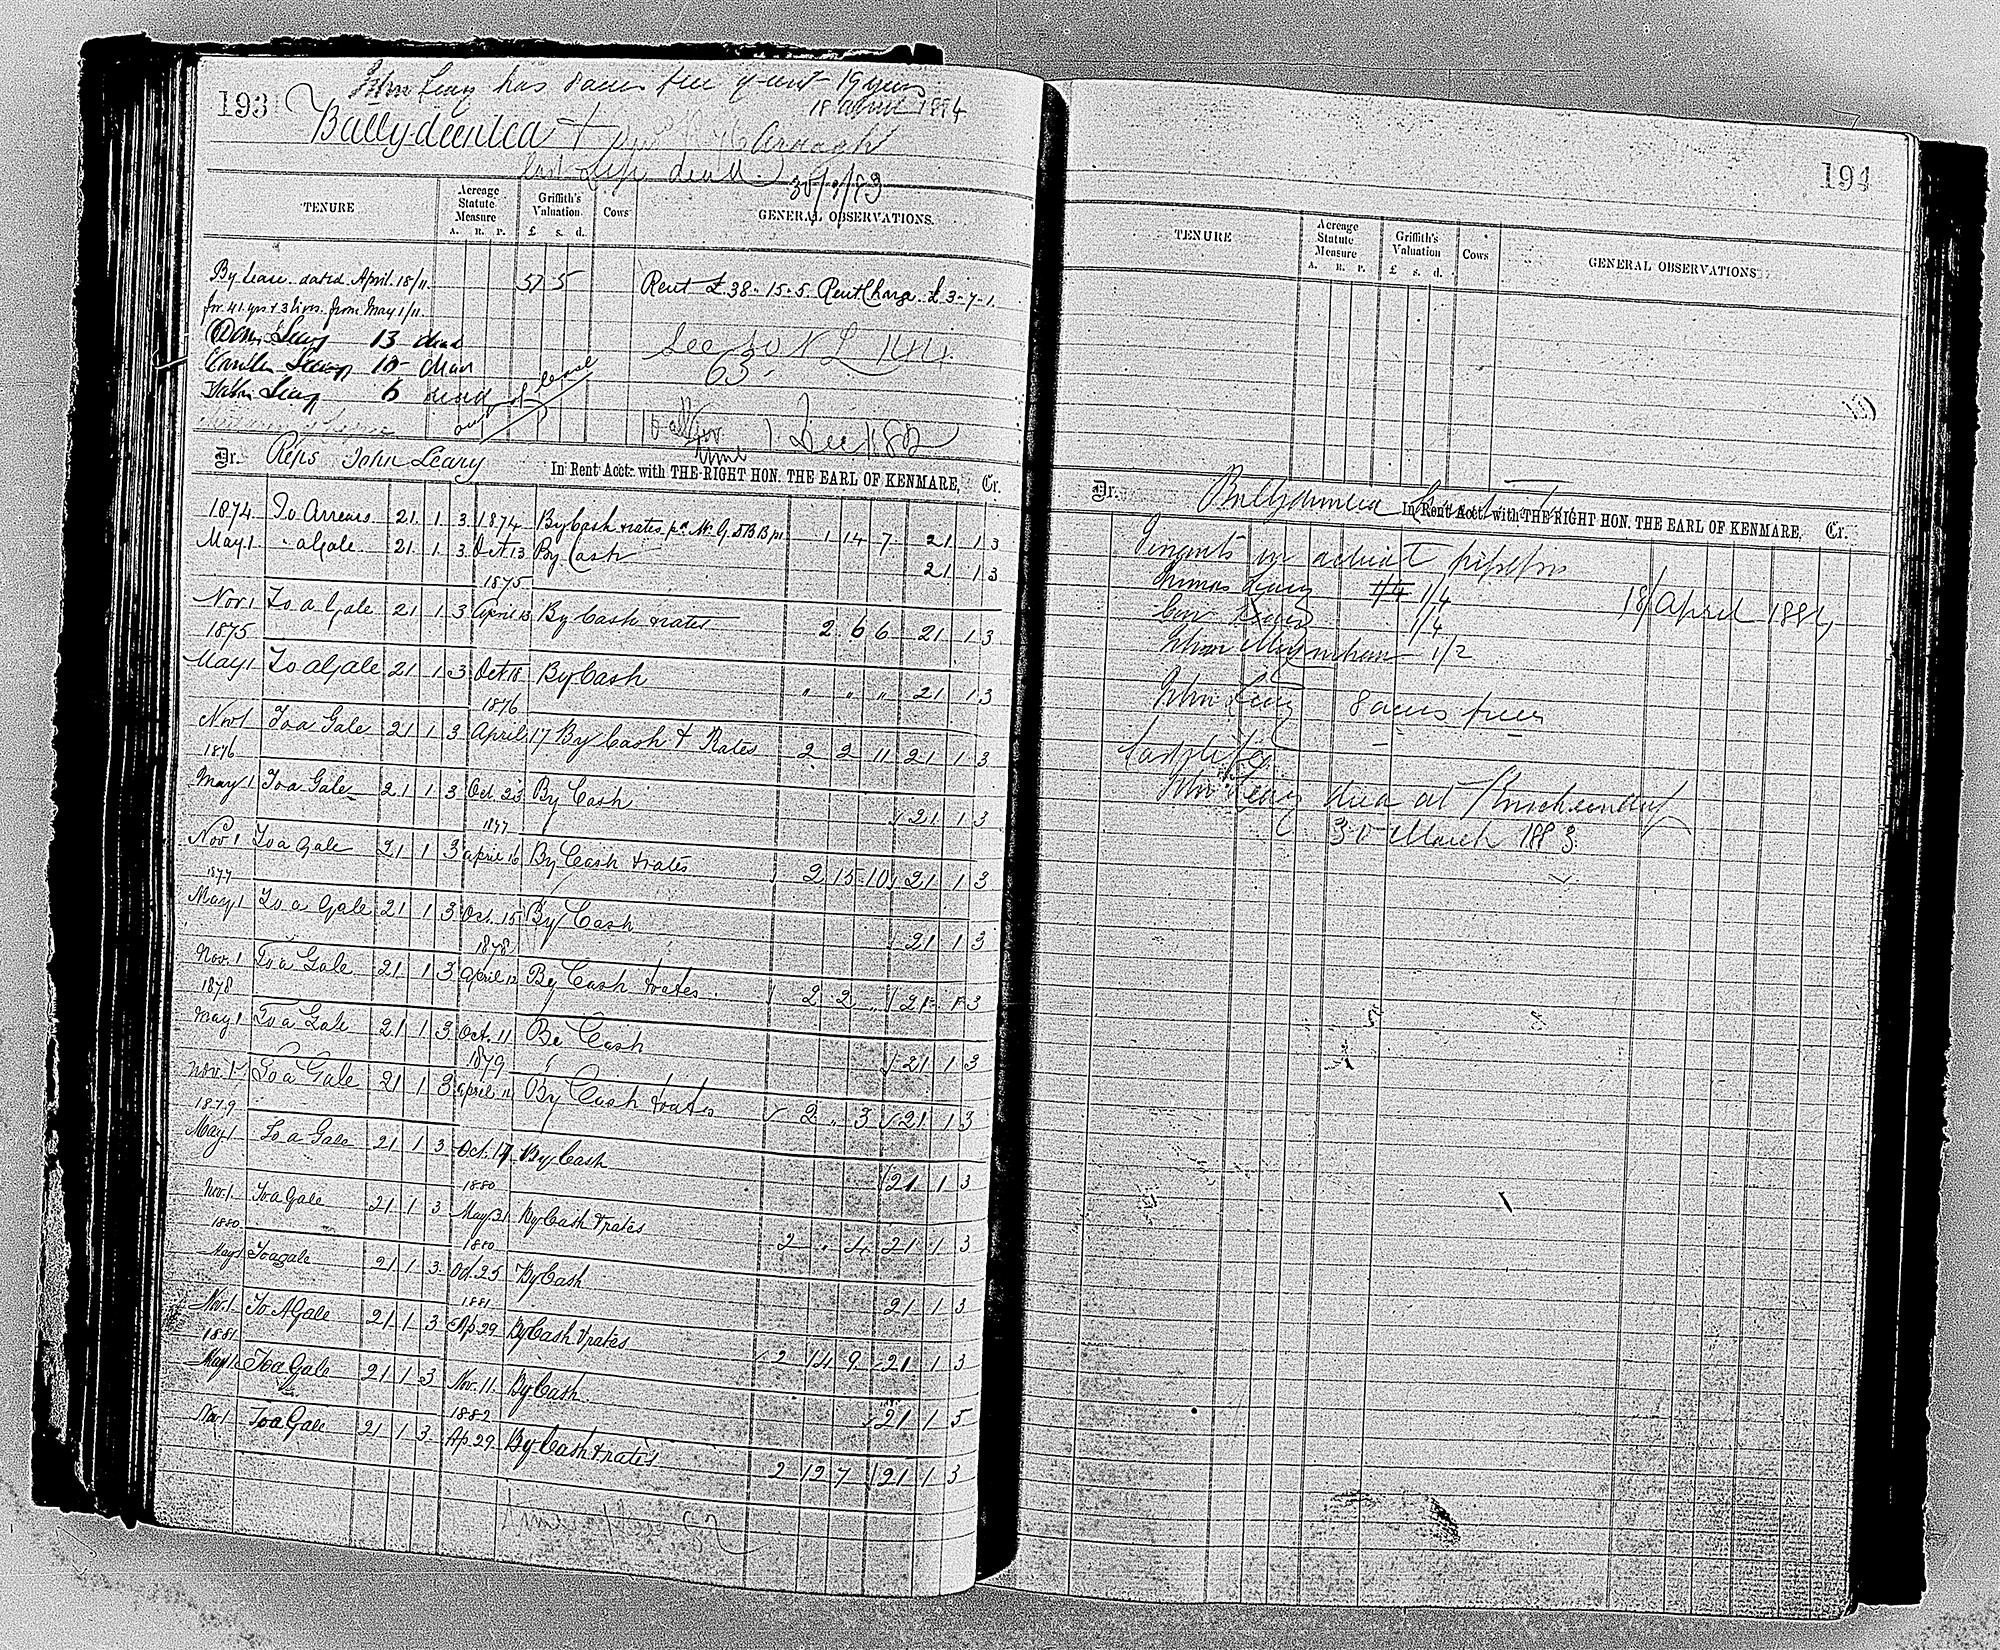 193
John Leary has 8 acres free of rent 19 years
18 April 1884
Ballydeenlea +
last Life dead. 30/3/83
TENURE
Acreage Statute Measure
A. R. P.
Griffith's Valuation
£ s. d.
Cows
GENERAL OBSERVATIONS.
By Lease dated April 18/11 57 5 Rent £38-15-5. RentCharge £3-7-1.
for 41 yrs & 3 lives from May 1/11.
Leary 13 dead
Leary 10 dead
Leary 6 dead
out of lease
See 30 N L
63.
1 Dec 1882
Dr. Reps John Leary In Rent Acct. with THE RIGHT HON. THE EARL OF KENMARE, Cr.
1874 To Arrears 21 1 3 1874 By Cash & rates 1 14 7 21 1 3
May 1 " a Gale 21 1 3 Oct. 13 By Cash 21 1 3
1875
Nov 1 To a Gale 21 1 3 April 13 By Cash & rates 2 6 6 21 1 3
1875
May 1 To a Gale 21 1 3 Oct 18 By Cash " " " 21 1 3
1876
Nov 1 To a Gale 21 1 3 April 17 By Cash & Rates 2 2 11 21 1 3
1876
May 1 To a Gale 21 1 3 Oct. 23 By Cash 21 1 3
1877
Nov 1 To a Gale 21 1 3 April 16 By Cash & rates 2 15 10 21 1 3
1877
May 1 To a Gale 21 1 3 Oct. 15 By Cash 21 1 3
1878
Nov. 1 To a Gale 21 1 3 April 12 By Cash & rates 2 2 " 21 1 3
1878
May 1 To a Gale 21 1 3 Oct. 11 By Cash 21 1 3
1879
Nov. 1 To a Gale 21 1 3 April 11 By Cash & rates 2 " 3 21 1 3
1879
May 1 To a Gale 21 1 3 Oct. 17 By Cash 21 1 3
1880
Nov. 1 To a Gale 21 1 3 May 31 By Cash & rates 2 " 4 21 1 3
1880 1880
May 1 To a gale 21 1 3 Od. 25 By Cash 21 1 3
1881
Nov. 1 To A Gale 21 1 3 Ap 29 By Cash & rates 2 14 9 21 1 3
1881
May 1 To a Gale 21 1 3 Nov. 11. By Cash 21 1 5
1882
Nov 1 To a Gale 21 1 3 Ap. 29. By Cash & rates 2 12 7 21 1 3
194
TENURE
Acreage Statute Measure
A. R. P.
Griffith's Valuation
£ s. d.
Cows
GENERAL OBSERVATIONS
Dr. In Rent Acct. with THE RIGHT HON. THE EARL OF KENMARE, Cr.
Tenants in actual
Thomas Leary 1/4 18 April 1884
1/4
Moynihan 1/2
John Leary 8 acres free
John Leary died at
30 March 1883